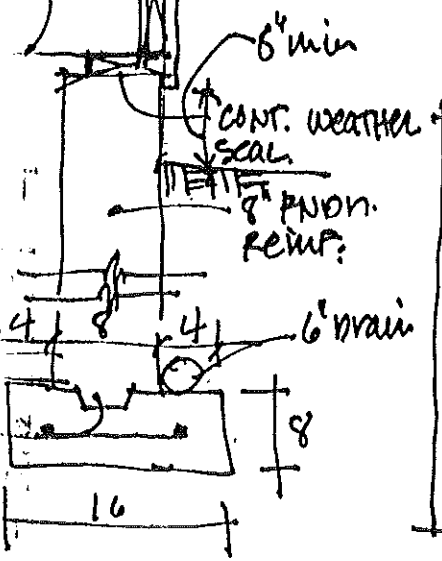 6" min
CONT. WEATHER
SEAL
8" FNDN.
REINF.
4 8 4
6" DRAIN
8
16